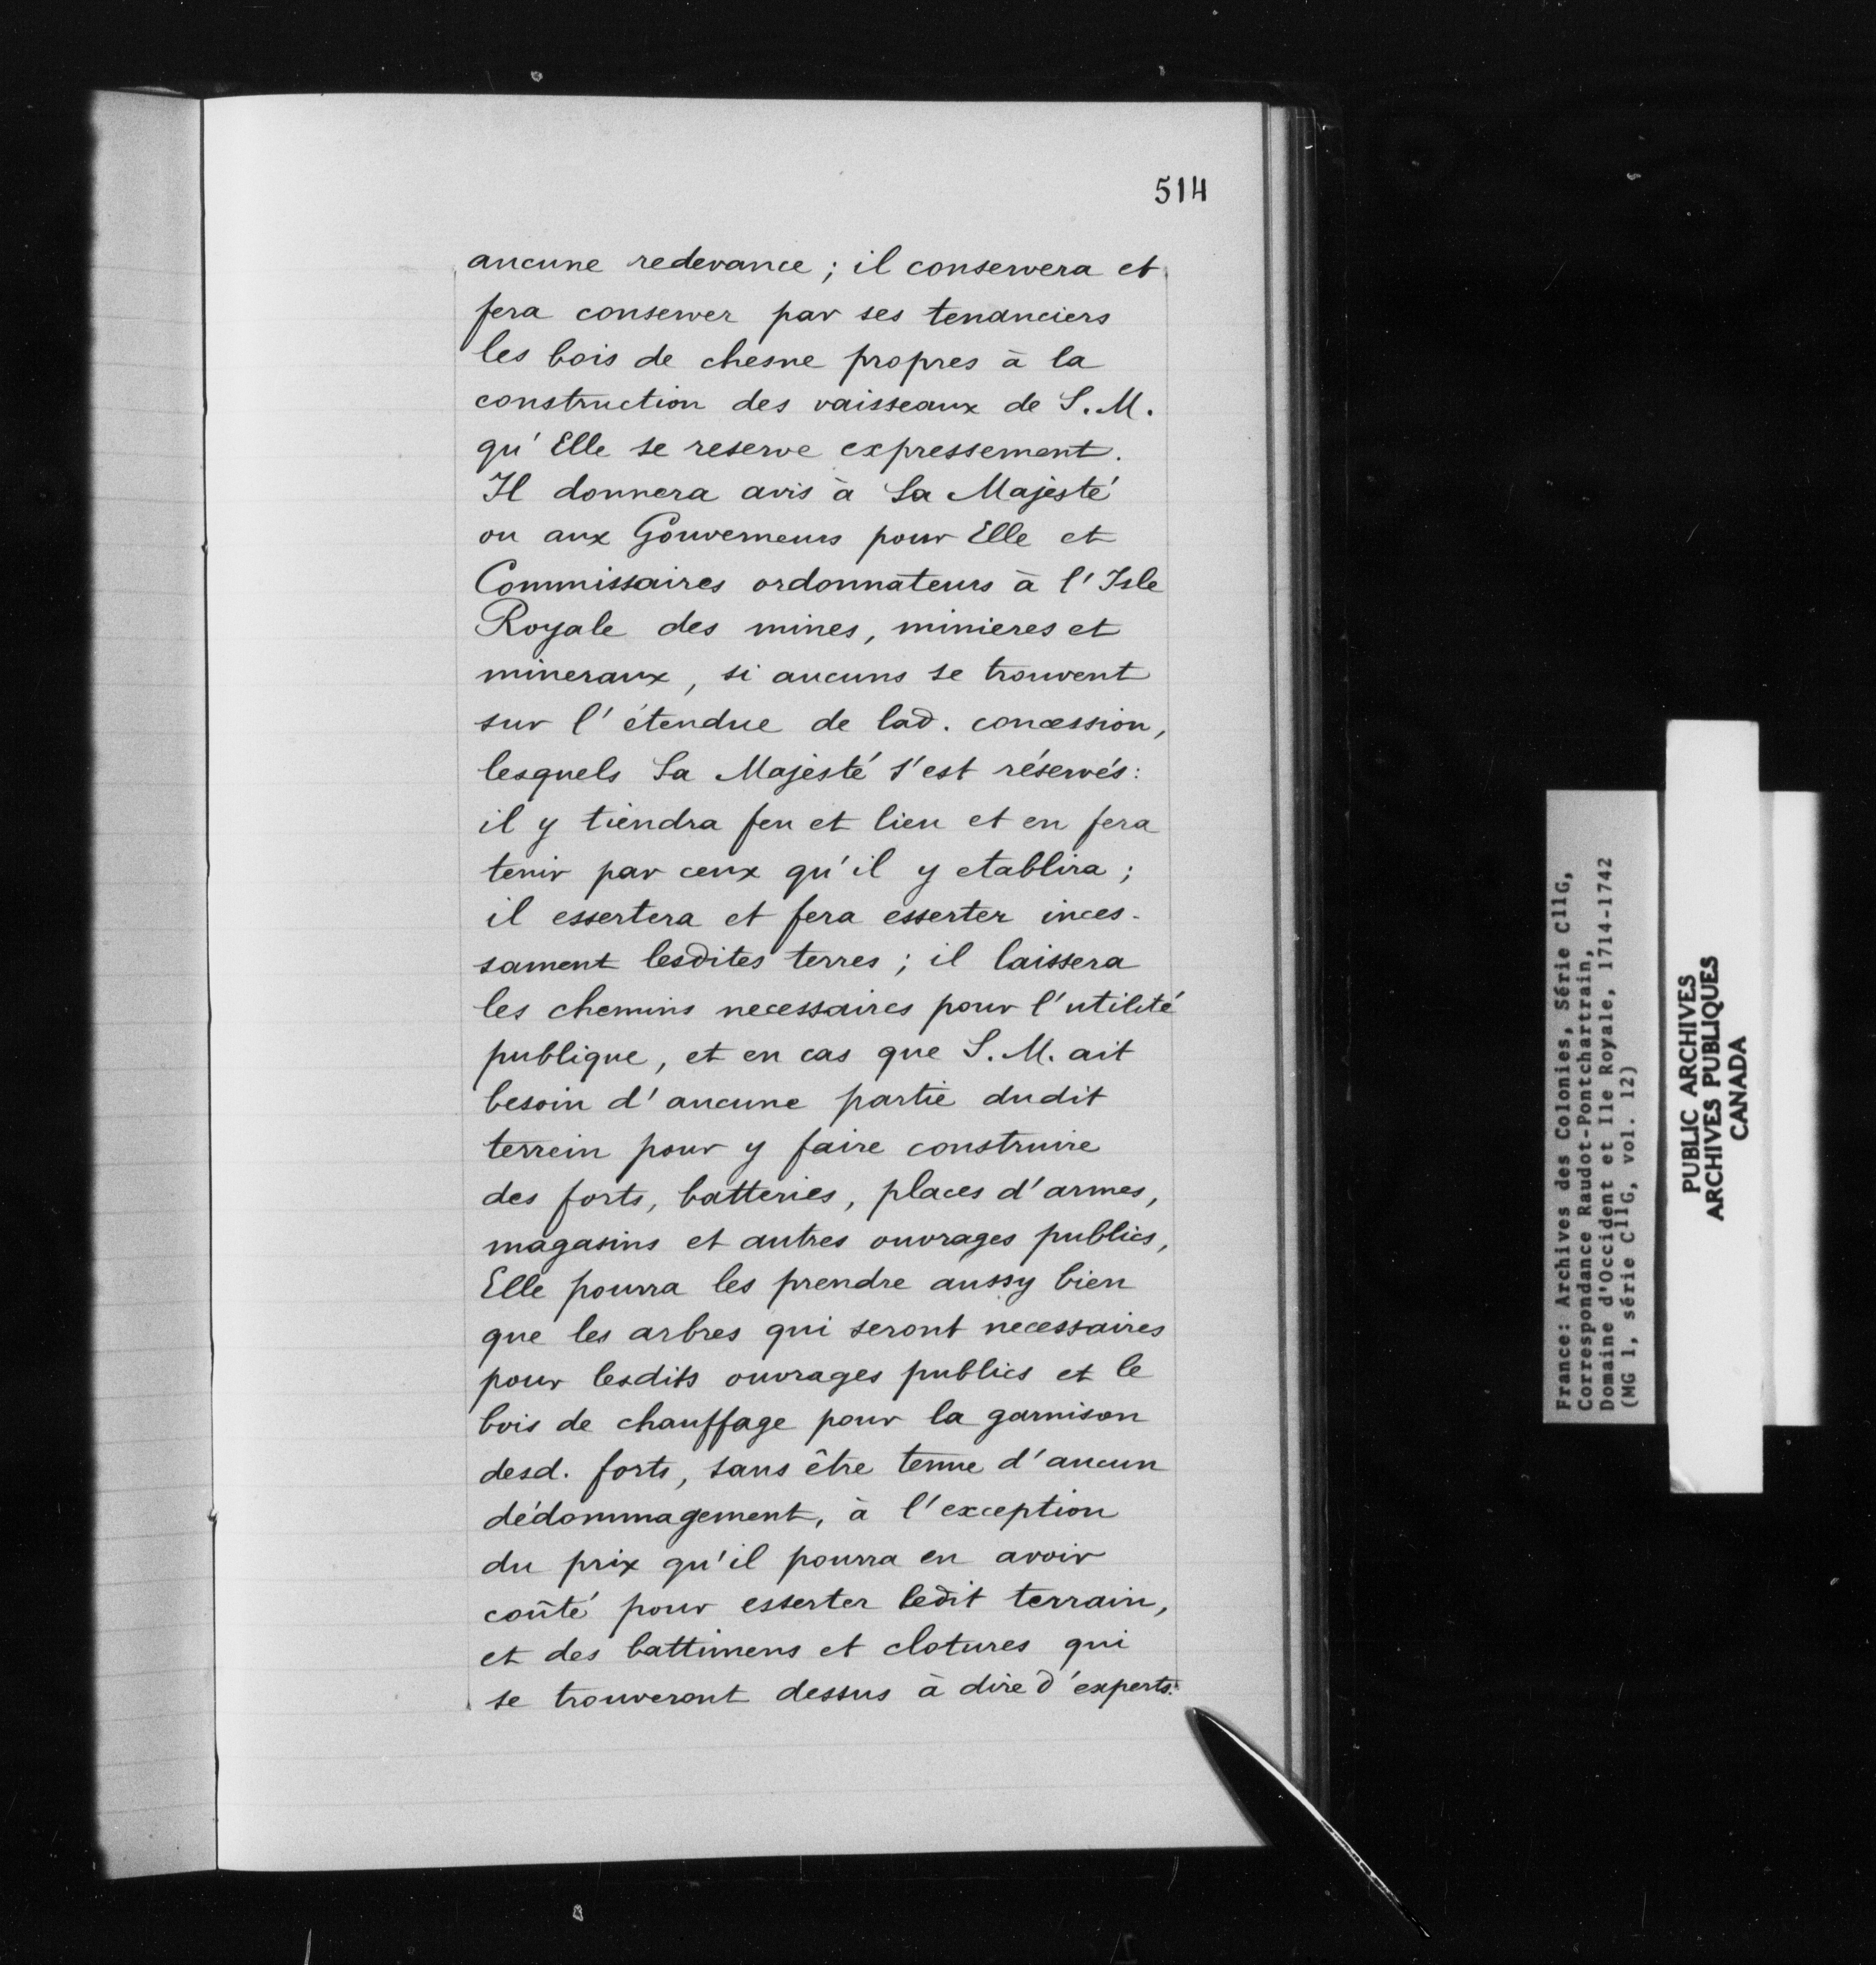 514
aucune redevance ; il conservera et
fera conserver par ses tenanciers
les bois de chesne propres à la
construction des vaisseaux de S. M.
qu'Elle se reserve expressement.
Il donnera avis à Sa Majesté
ou aux Gouverneurs pour Elle et
Commissaires ordonnateurs à l'Isle
Royale des mines, minieres et
mineraux, si aucuns se trouvent
sur l'étendue de lad. concession,
lesquels Sa Majesté s'est réservés :
il y tiendra feu et lieu et en fera
tenir par ceux qu'il y etablira ;
il essertera et fera esserter inces-
sament lesdites terres ; il laissera
les chemins necessaires pour l'utilité
publique, et en cas que S. M. ait
besoin d'aucune partie dudit
terrein pour y faire construire
des forts, batteries, places d'armes,
magasins et autres ouvrages publics,
Elle pourra les prendre aussy bien
que les arbres qui seront necessaires
pour lesdits ouvrages publics et le
bois de chauffage pour la garnison
desd. forts, sans être tenue d'aucun
dédommagement, à l'exception
du prix qu'il pourra en avoir
coûté pour esserter ledit terrain,
et des battimens et clotures qui
se trouveront dessus à dire d'experts.
France: Archives des Colonies, Série C11G,
Correspondance Raudot-Pontchartrain,
Domaine d'Occident et Ile Royale, 1714-1742
(MG 1, série C11G, vol. 12)
PUBLIC ARCHIVES
ARCHIVES PUBLIQUES
CANADA